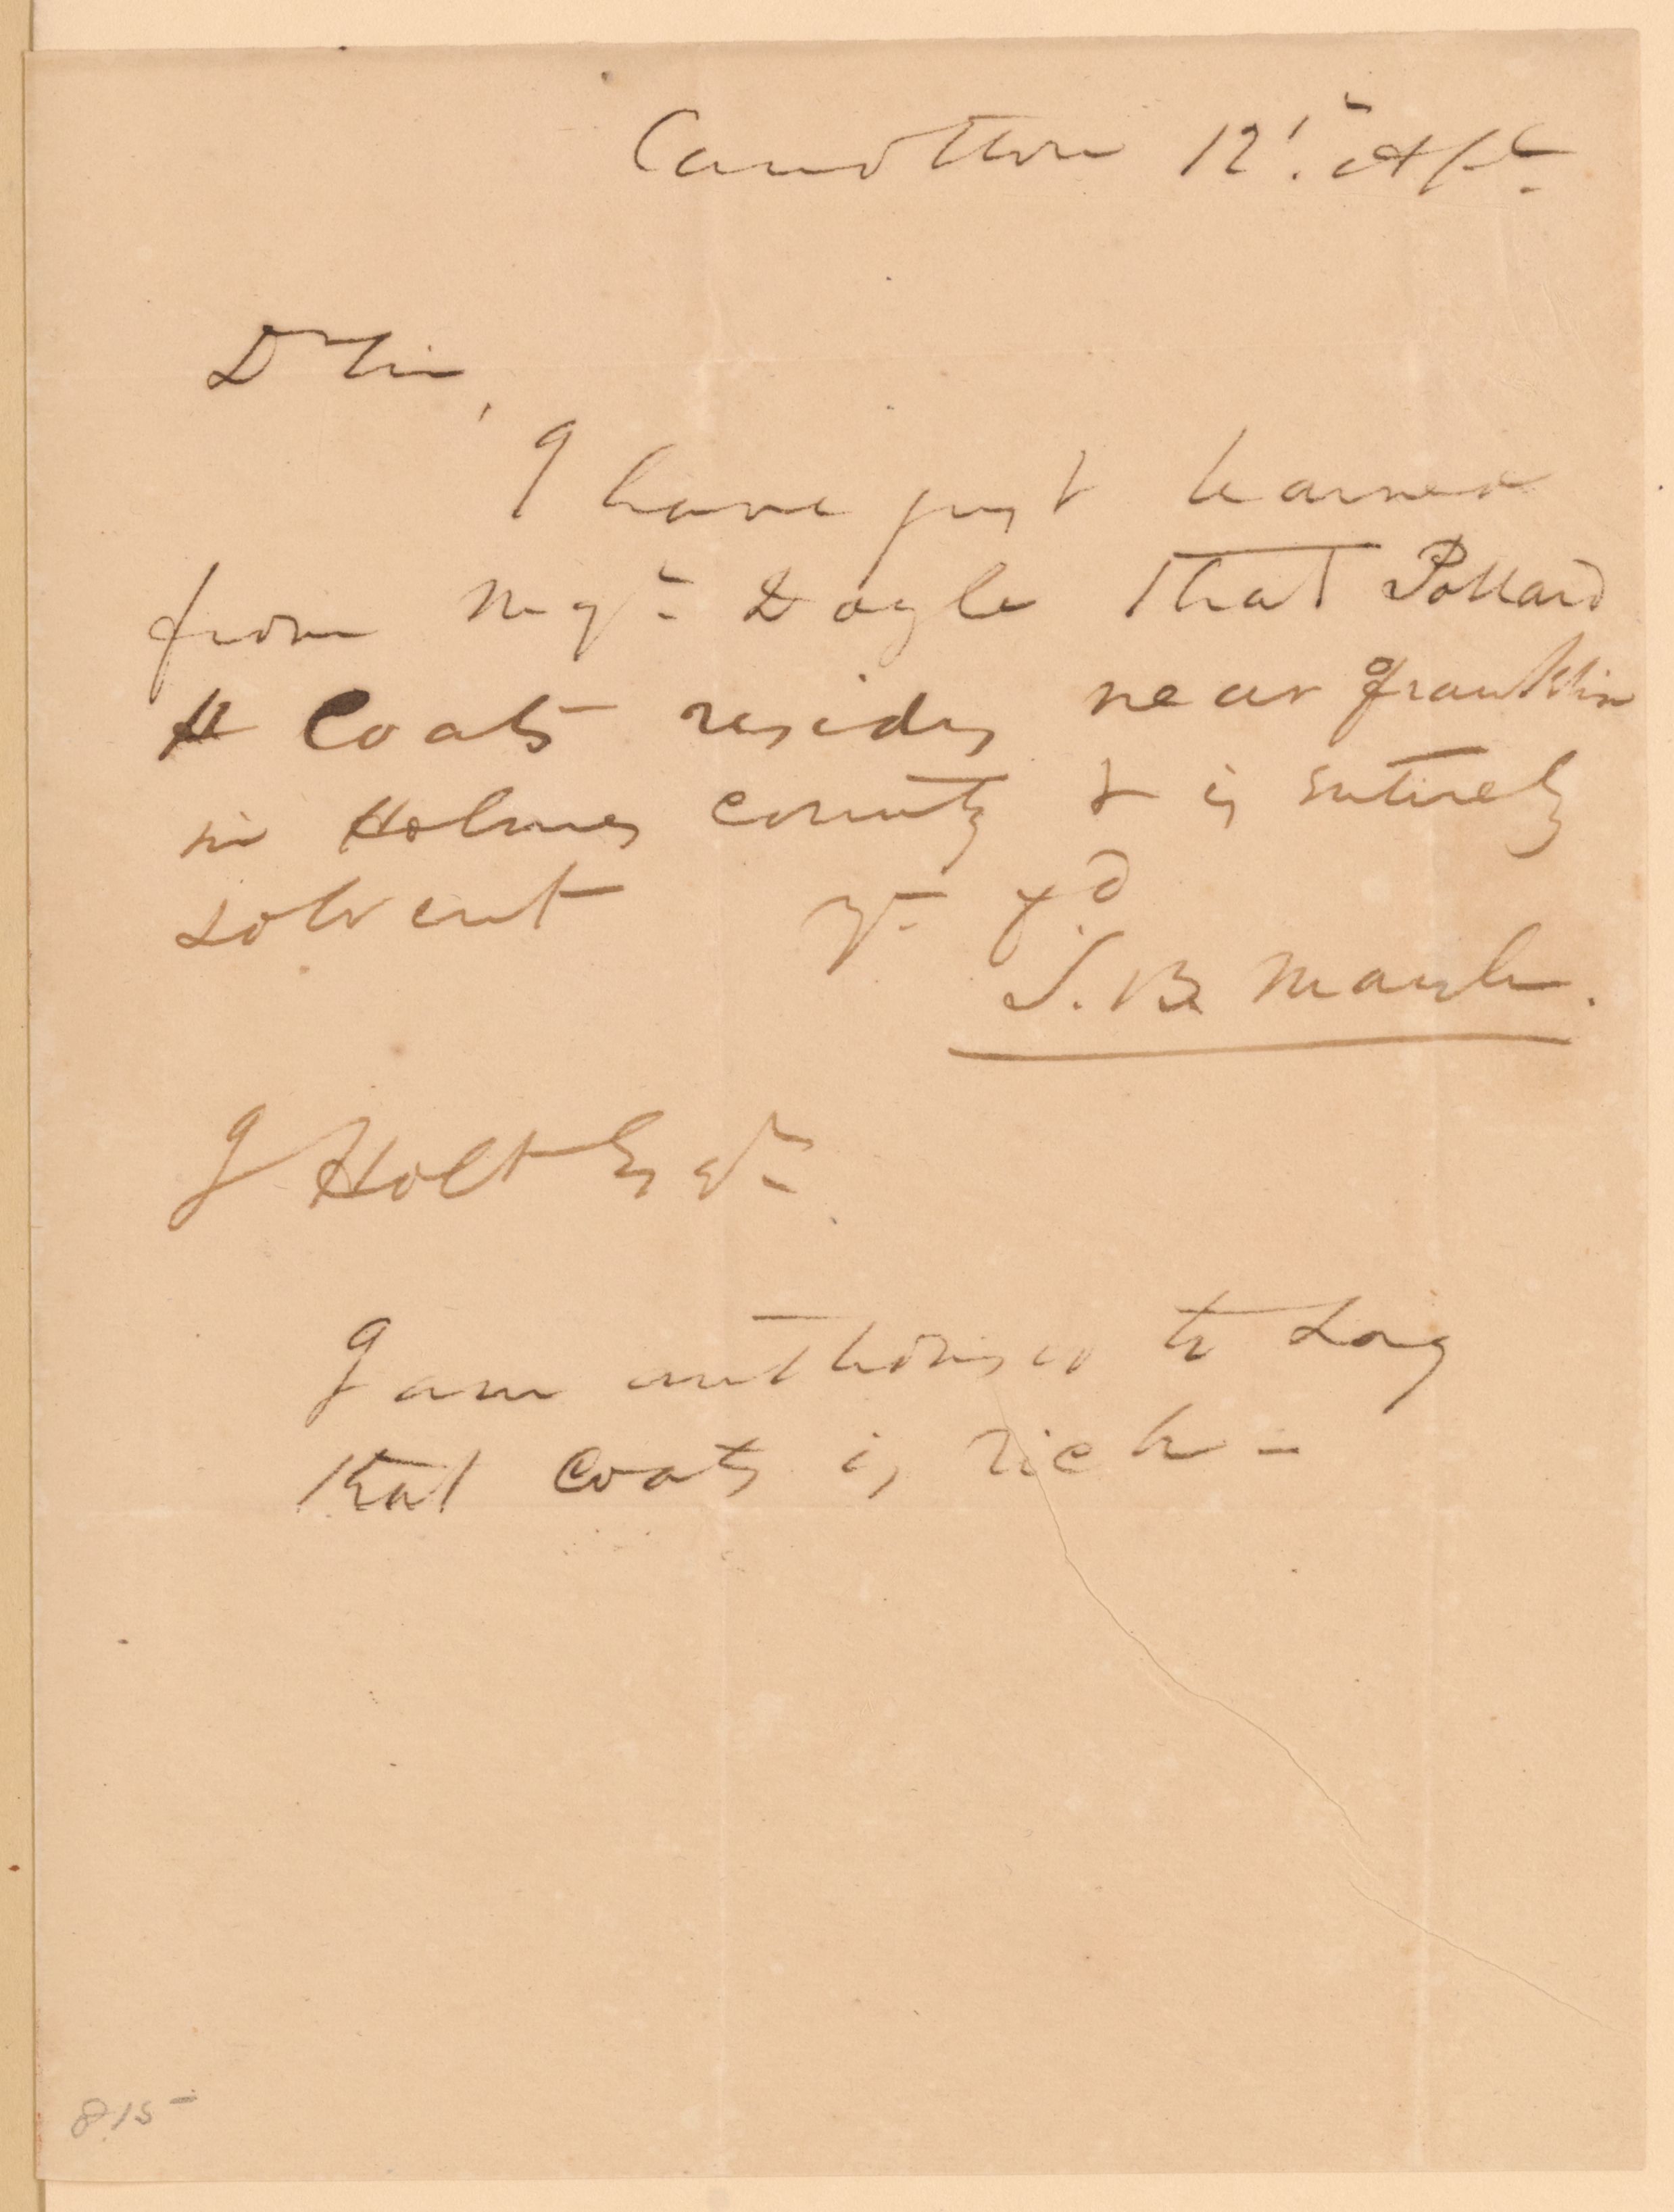 Carrollton 12th Apl.
Dr Sir,
I have just learned
from Majr Dogle that Pollard
H Coats resides near Franklin
in Holmes County & is entirely
solvent yr fd
S. B. Marsh.
J Holt Esqr.
I am authorised to say
that Coats is rich -
815